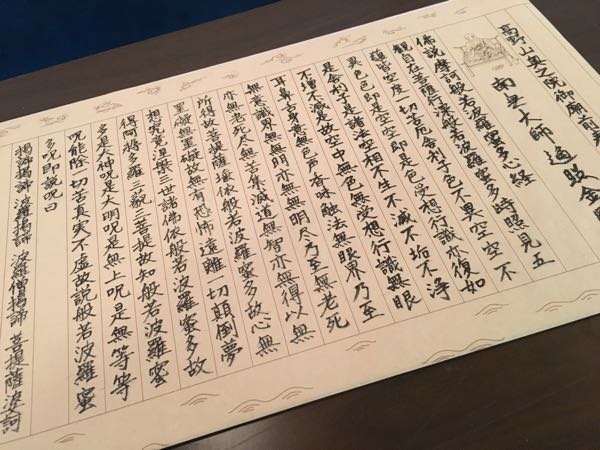 高野山奥之院御廟前
南無大師遍照金
佛説摩訶般若波羅蜜多心経
観自在菩薩行深般若波羅蜜多時照見五
蘊皆空度一切苦厄舎利子色不異空空不
異色色即是空空即是色受想行識亦復如
是舎利子是諸法空相不生不滅不垢不浄
不増不減是故空中無色無受想行識無眼
耳鼻舌身意無色声香味触法無眼界乃至
無意識界無無明亦無無明尽乃至無老死
亦無老死尽無苦集滅道無智亦無得以無
所得故菩提薩埵依般若波羅蜜多故心無
罣礙無罣礙故無有恐怖遠離一切顛倒夢
想究竟涅槃三世諸佛依般若波羅蜜多故
得阿耨多羅三藐三菩提故知般若波羅蜜
多是大神呪是大明呪是無上呪是無等等
呪能除一切苦真実不虚故説般若波羅蜜
多呪即説呪曰
羯諦羯諦 波羅羯諦 波羅僧羯諦 菩提薩婆訶